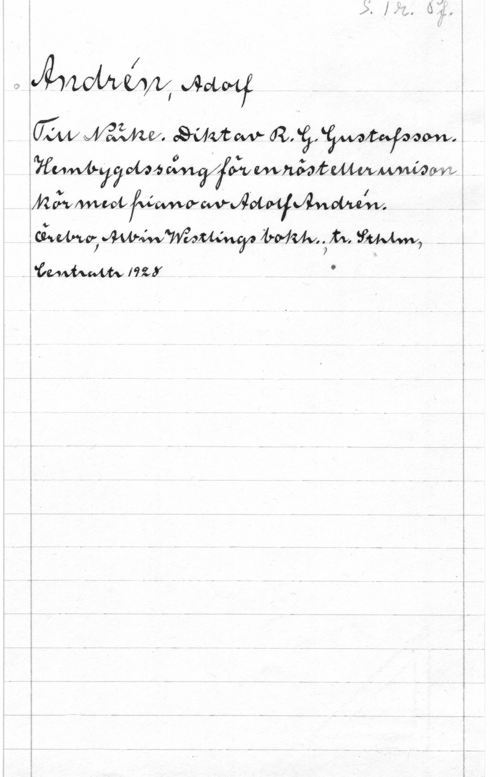 S. 1 r. 8f.
Andrén, Adolf
Till Närke. Dikt av R. G. Gustafsson.
Hembygdssång för en röst eller unison
kör med piano av Adolf Andrén.
Örebro, Albin Westlings bokh., tr. Sthlm,
Centraltr 1928